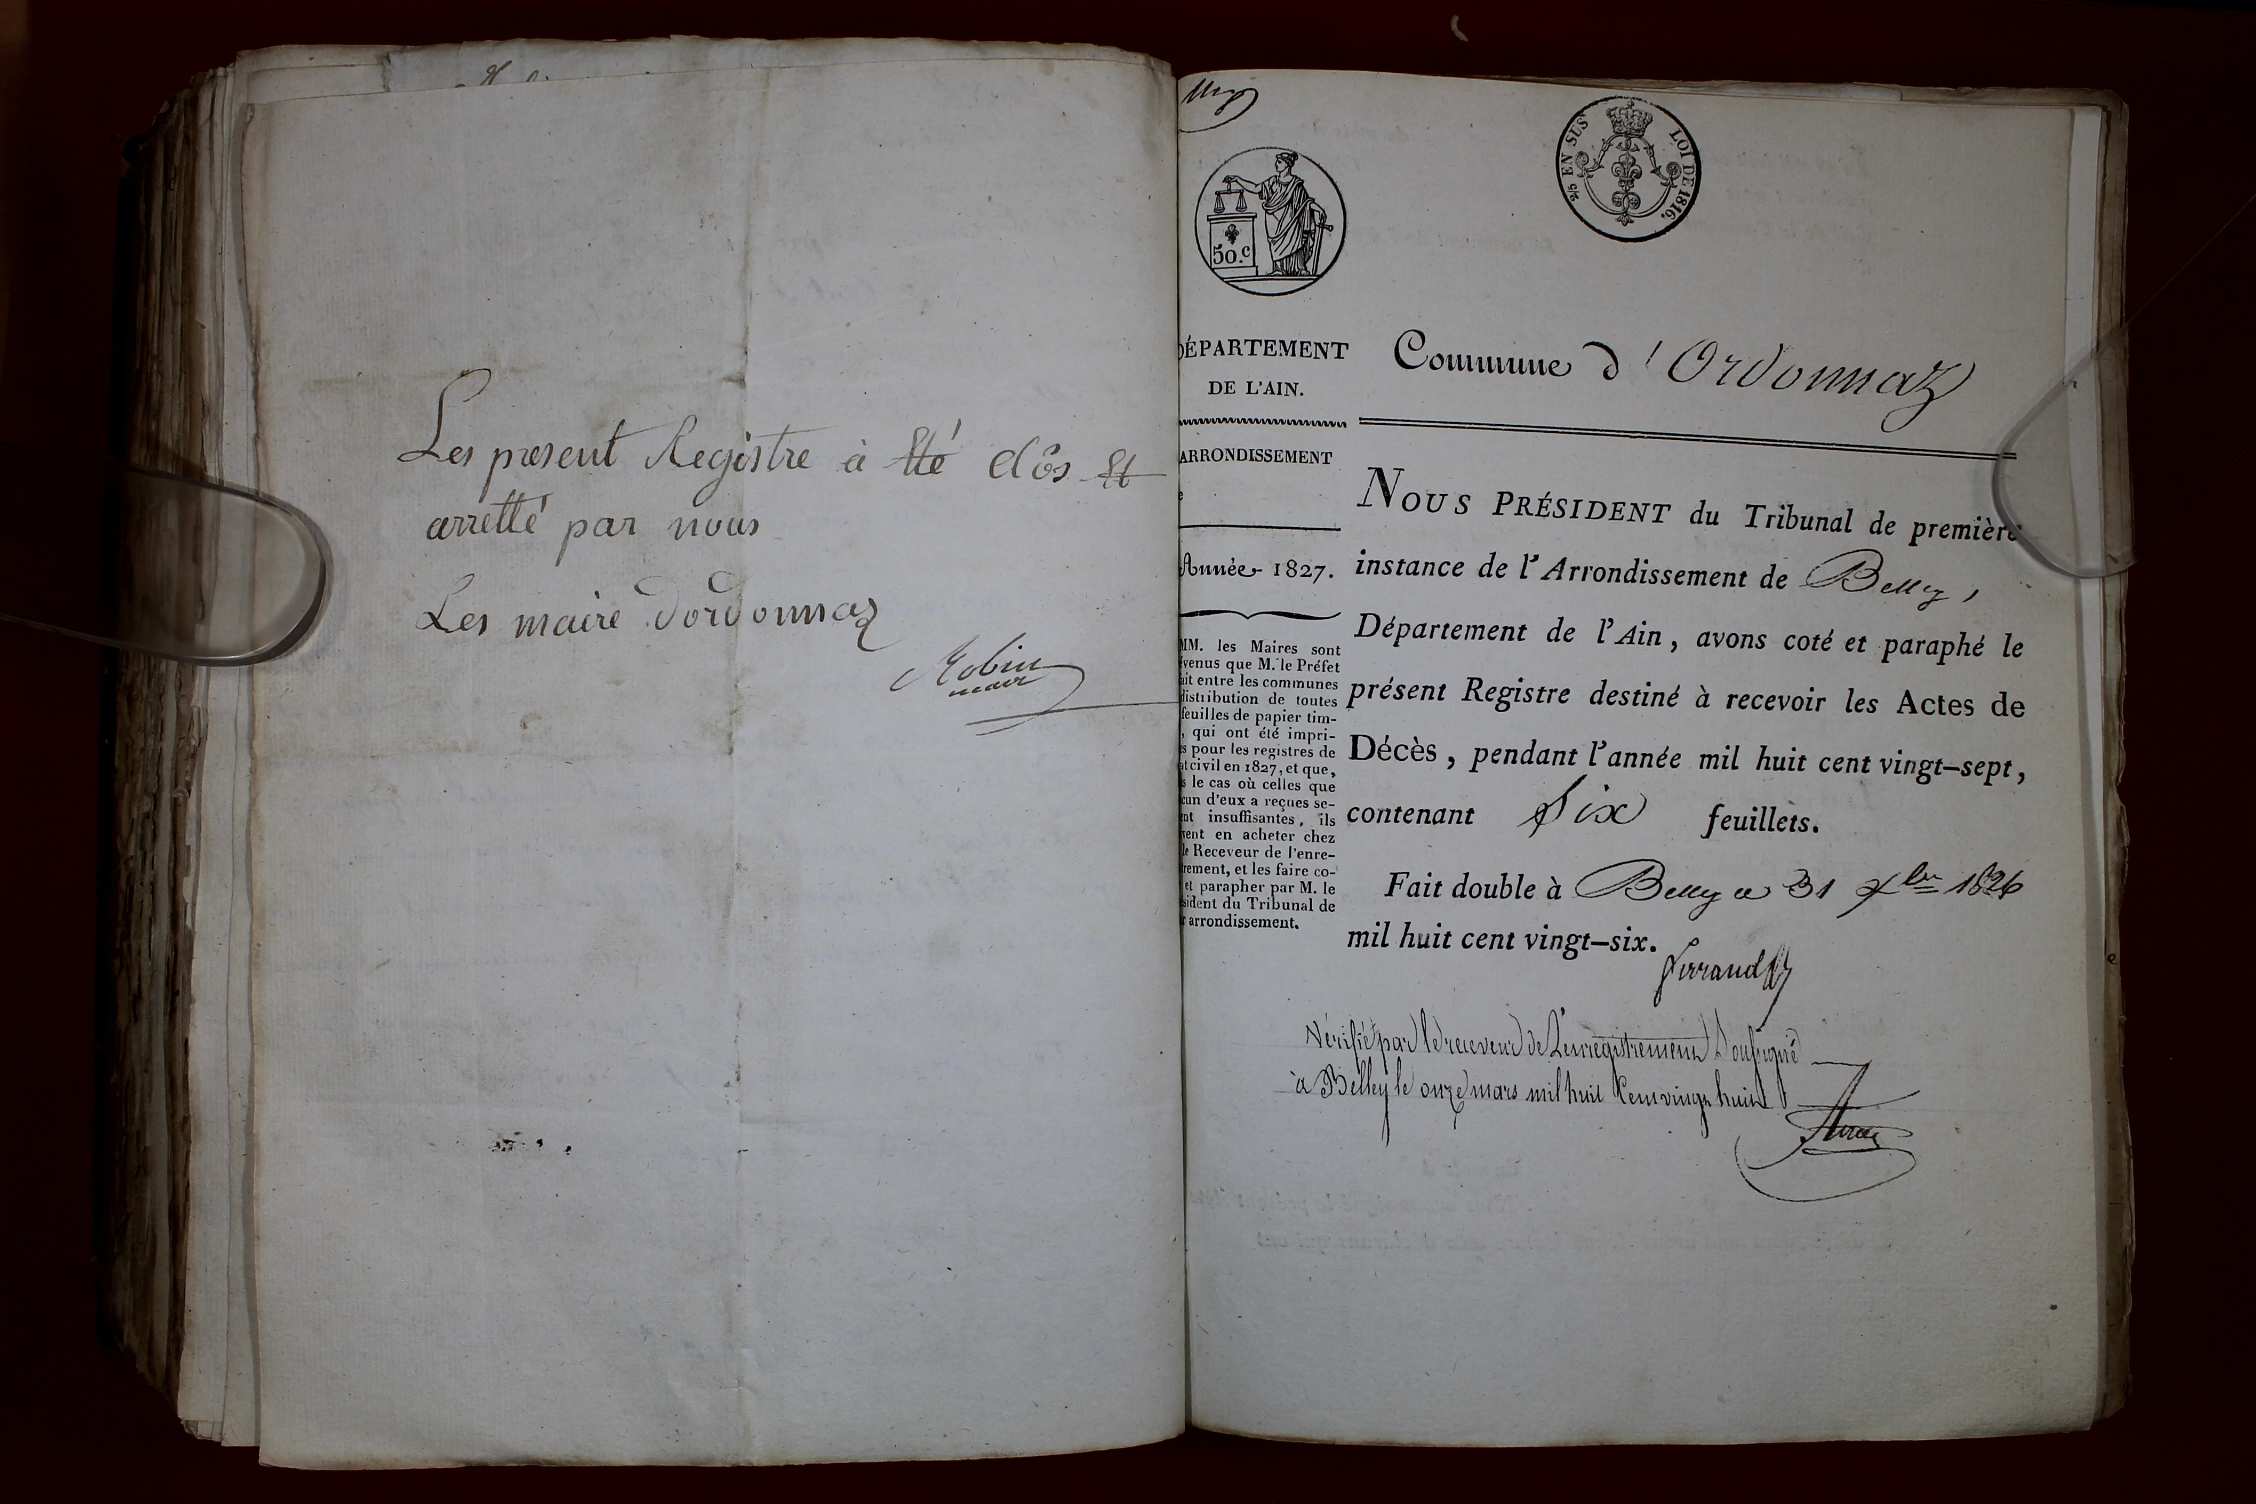 Les present Registre à été clôs et
arretté par nous
Les maire dordonnaz
Robin
maire
50.c
2/5 EN SUS LOI DE 1816.
DÉPARTEMENT
DE L'AIN.
ARRONDISSEMENT
Année 1827.
MM. les Maires sont
venus que M. le Préfet
ait entre les communes
distribution de toutes
feuilles de papier tim-
, qui ont été impri-
s pour les registres de
at civil en 1827, et que,
s le cas où celles que
cun d'eux a reçues se-
ent insuffisantes, ils
vent en acheter chez
le Receveur de l'enre-
rement, et les faire co-
et parapher par M. le
sident du Tribunal de
r arrondissement.
Commune d'Ordonnaz
NOUS PRÉSIDENT du Tribunal de première
instance de l'Arrondissement de Belley,
Département de l'Ain, avons coté et paraphé le
présent Registre destiné à recevoir les Actes de
Décès, pendant l'année mil huit cent vingt-sept,
contenant Six feuillets.
Fait double à Belley ce 31 Xbre 1826
mil huit cent vingt-six.
Vérifié par le receveur de L'enregistrement Soussigné
à Belley le onze mars mil huit Cent vingt huit